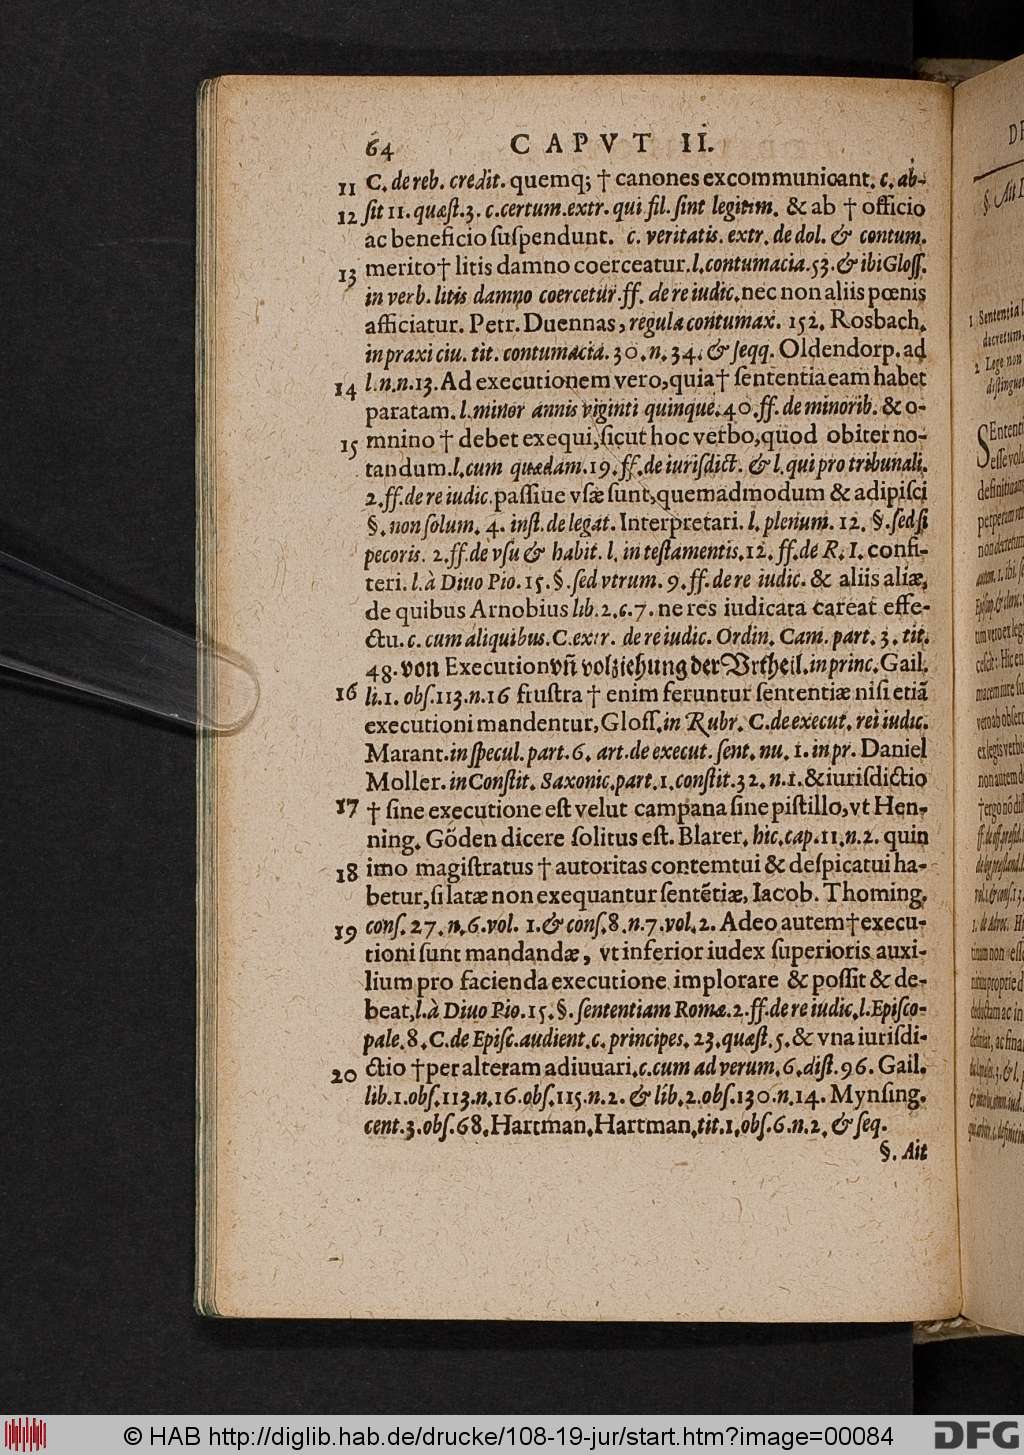 64 CAPVT II.
11 C. de reb. credit. quemq; † canones excommunicant. c. ab-
12 ſit 11. quæſt. 3. c. certum. extr. qui fil. ſint legitim. & ab † officio
ac beneficio ſuſpendunt. c. veritatis. extr. de dol. & contum.
13 merito † litis damno coerceatur. l. contumacia. 53. & ibi Gloſſ.
in verb. litis damno coercetur. ff. de re iudic. nec non aliis pœnis
afficiatur. Petr. Duennas, regula contumax. 152. Rosbach.
in praxi ciu. tit. contumacia. 30. n. 34. & ſeqq. Oldendorp. ad
14 l. n. n. 13. Ad executionem vero, quia † ſententia eam habet
paratam. l. minor annis viginti quinque. 40. ff. de minorib. & o-
15 mnino † debet exequi, ſicut hoc verbo, quod obiter no-
tandum. l. cum quædam. 19. ff. de iuriſdict. & l. qui pro tribunali.
2. ff. de re iudic. paſſiue vſæ ſunt, quemadmodum & adipiſci
§. non ſolum. 4. inſt. de legat. Interpretari. l. plenum. 12. §. ſed ſi
pecoris. 2. ff. de vſu & habit. l. in teſtamentis. 12. ff. de R. I. confi-
teri. l. à Diuo Pio. 15. §. ſed vtrum. 9. ff. de re iudic. & aliis aliæ,
de quibus Arnobius lib. 2. c. 7. ne res iudicata careat effe-
ctu. c. cum aliquibus. C. extr. de re iudic. Ordin. Cam. part. 3. tit.
48. von Execution vn̄ volziehung der Vrtheil. in princ. Gail.
16 li. 1. obſ. 113. n. 16 fruſtra † enim feruntur ſententiæ niſi etiā
executioni mandentur, Gloſſ. in Rubr. C. de execut. rei iudic.
Marant. in ſpecul. part. 6. art. de execut. ſent. nu. 1. in pr. Daniel
Moller. in Conſtit. Saxonic. part. 1. conſtit. 32. n. 1. & iuriſdictio
17 † ſine executione eſt velut campana ſine piſtillo, vt Hen-
ning. Göden dicere ſolitus eſt. Blarer. hic. cap. 11. n. 2. quin
18 imo magiſtratus † autoritas contemtui & deſpicatui ha-
betur, ſi latæ non exequantur ſentētiæ, Iacob. Thoming.
conſ. 27. n. 6. vol. 1. & conſ. 8. n. 7. vol. 2. Adeo autem † execu-
19 tioni ſunt mandandæ, vt inferior iudex ſuperioris auxi-
lium pro facienda executione implorare & poſſit & de-
beat, l. à Diuo Pio. 15. §. ſententiam Romæ. 2. ff. de re iudic. l. Epiſco-
pale. 8. C. de Epiſc. audient. c. principes. 23. quæſt. 5. & vna iuriſdi-
20 ctio † per alteram adiuuari. c. cum ad verum. 6. diſt. 96. Gail.
lib. 1. obſ. 113. n. 16. obſ. 115. n. 2. & lib. 2. obſ. 130. n. 14. Mynſing.
cent. 3. obſ. 68. Hartman. Hartman. tit. 1. obſ. 6. n. 2. & ſeq.
§. Ait
© HAB http://diglib.hab.de/drucke/108-19-jur/start.htm?image=00084
DFG